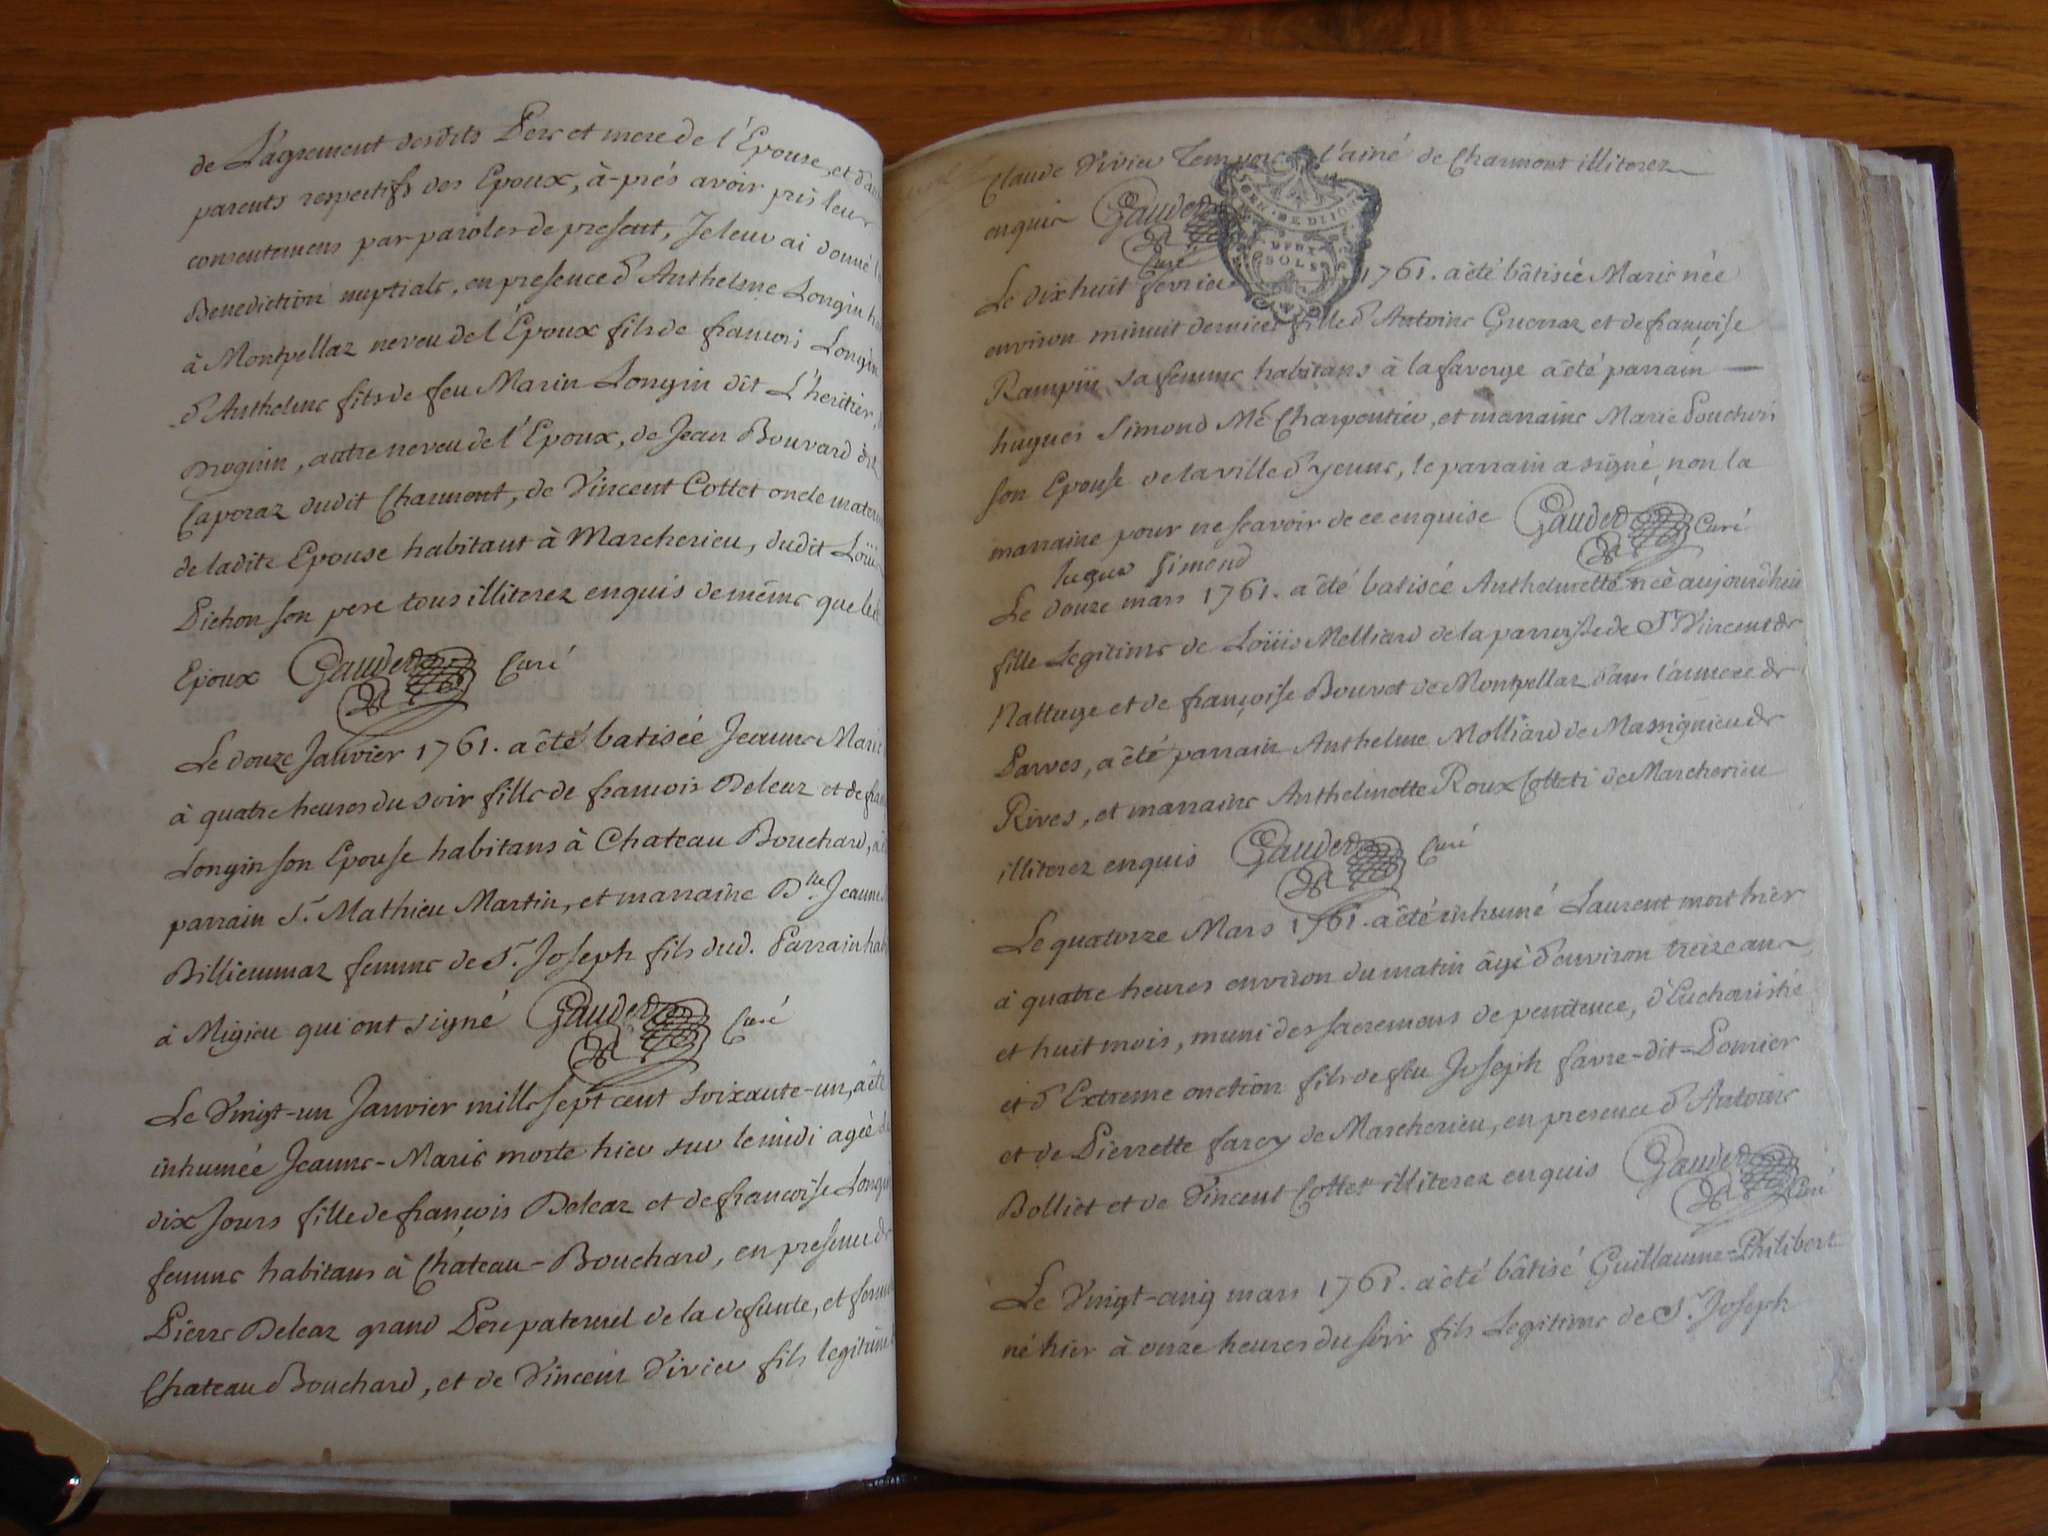 de L'agrement desdits Pere et mere de l'Epouse, et d'au
parents respectifs des Epoux, à-prés avoir pris leur
consentemens par paroles de present, Je leur ai donné
Benediction nuptiale, en presence d'Anthelme Longin
à Montpellaz neveu de l'Epoux fils de francois Longin
d'Anthelme fils de feu Marin Longin dit L'heritier,
Droguin, autre neveu de l'Epoux, de Jean Bouvard dit
Caporaz dudit Charmont, de Vincent Cottet oncle matern
de ladite Epouse habitant à Marcherieu, dudit Loüis
Pichon son pere tous illiterez enquis de même que les
Epoux Gauder Curé
Le douze Janvier 1761. a êté batisée Jeanne Marie
à quatre heures du soir fille de francois Deleaz et de fra
Longin son Epouse habitans à Chateau Bouchard, a
parrain Sr. Mathieu Martin, et marraine Dlle. Jeanne
Billiemmaz femme de Sr. Joseph fils dud. Parrain hab
à Migieu qui ont signé Gauder Curé
Le Vingt-un Janvier mille sept cent soixante-un, a êté
inhumée Jeanne-Marie morte hier sur le midi agée de
dix Jours fille de françois Deleaz et de francoise Longin
femme habitans à Château-Bouchard, en presence de
Pierre Deleaz grand Pere paternel de la defunte, et ferm
Chateau Bouchard, et de Vincent Vivier fils legitime
Claude Vivier l'ainé de Charmont illiterez
enquis Gauder Curé
GEN. DE DIJON
DEUX
SOLS
Le dix huit fevrier 1761. a êté bâtisée Marie née
environ minuit dernier fille d'Antoine Guerraz et de françoise
Rampin sa femme habitans à la faverge a êté parrain
hugues Simond Me. Charpentier, et marraine Marie Pouchon
son Epouse de la ville d'yenne, le parrain a signé non la
marraine pour ne scavoir de ce enquise Gauder Curé
hugue Simond
Le douze mars 1761. a êté batisée Anthelmette née aujourdhui
fille Legitime de Loüis Melliard de la parroisse de St. Vincent de
Nattage et de françoise Bouvet de Montpellaz dans l'annexe de
Parves, a êté parrain Anthelme Molliard de Massignieu de
Rives, et marraine Anthelmette Roux Cotteti de Marcherieu
illiterez enquis Gauder Curé
Le quatorze Mars 1761. a êté inhumé Laurent mort hier
à quatre heures environ du matin âgé d'environ treize ans
et huit mois, muni des sacremens de penitence, d'Eucharistie
et d'Extreme onction fils de feu Joseph favre-dit-Pomier
et de Pierrette farcy de Marcherieu, en presence d'Antoine
Bolliet et de Vincent Cottet illiterez enquis Gauder Curé
Le Vingt-cinq mars 1761. a êté bâtisé Guillaume-Philibert
né hier à onze heures du soir fils Legitime de Sr. Joseph